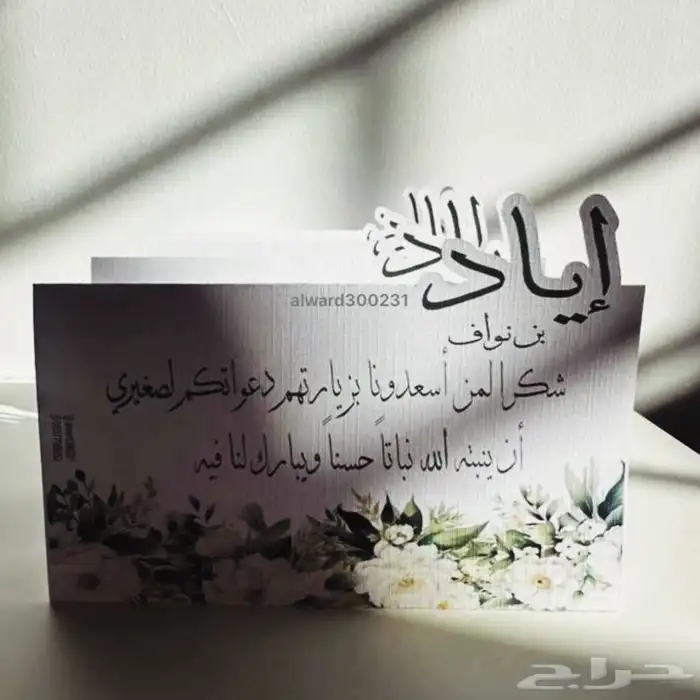 إياد
alward300231
بن نواف
شكرا لمن أسعدونا بزيارتهم دعواتكم لصغيري
أن ينبته الله نباتاً حسناً ويبارك لنا فيه
حراج